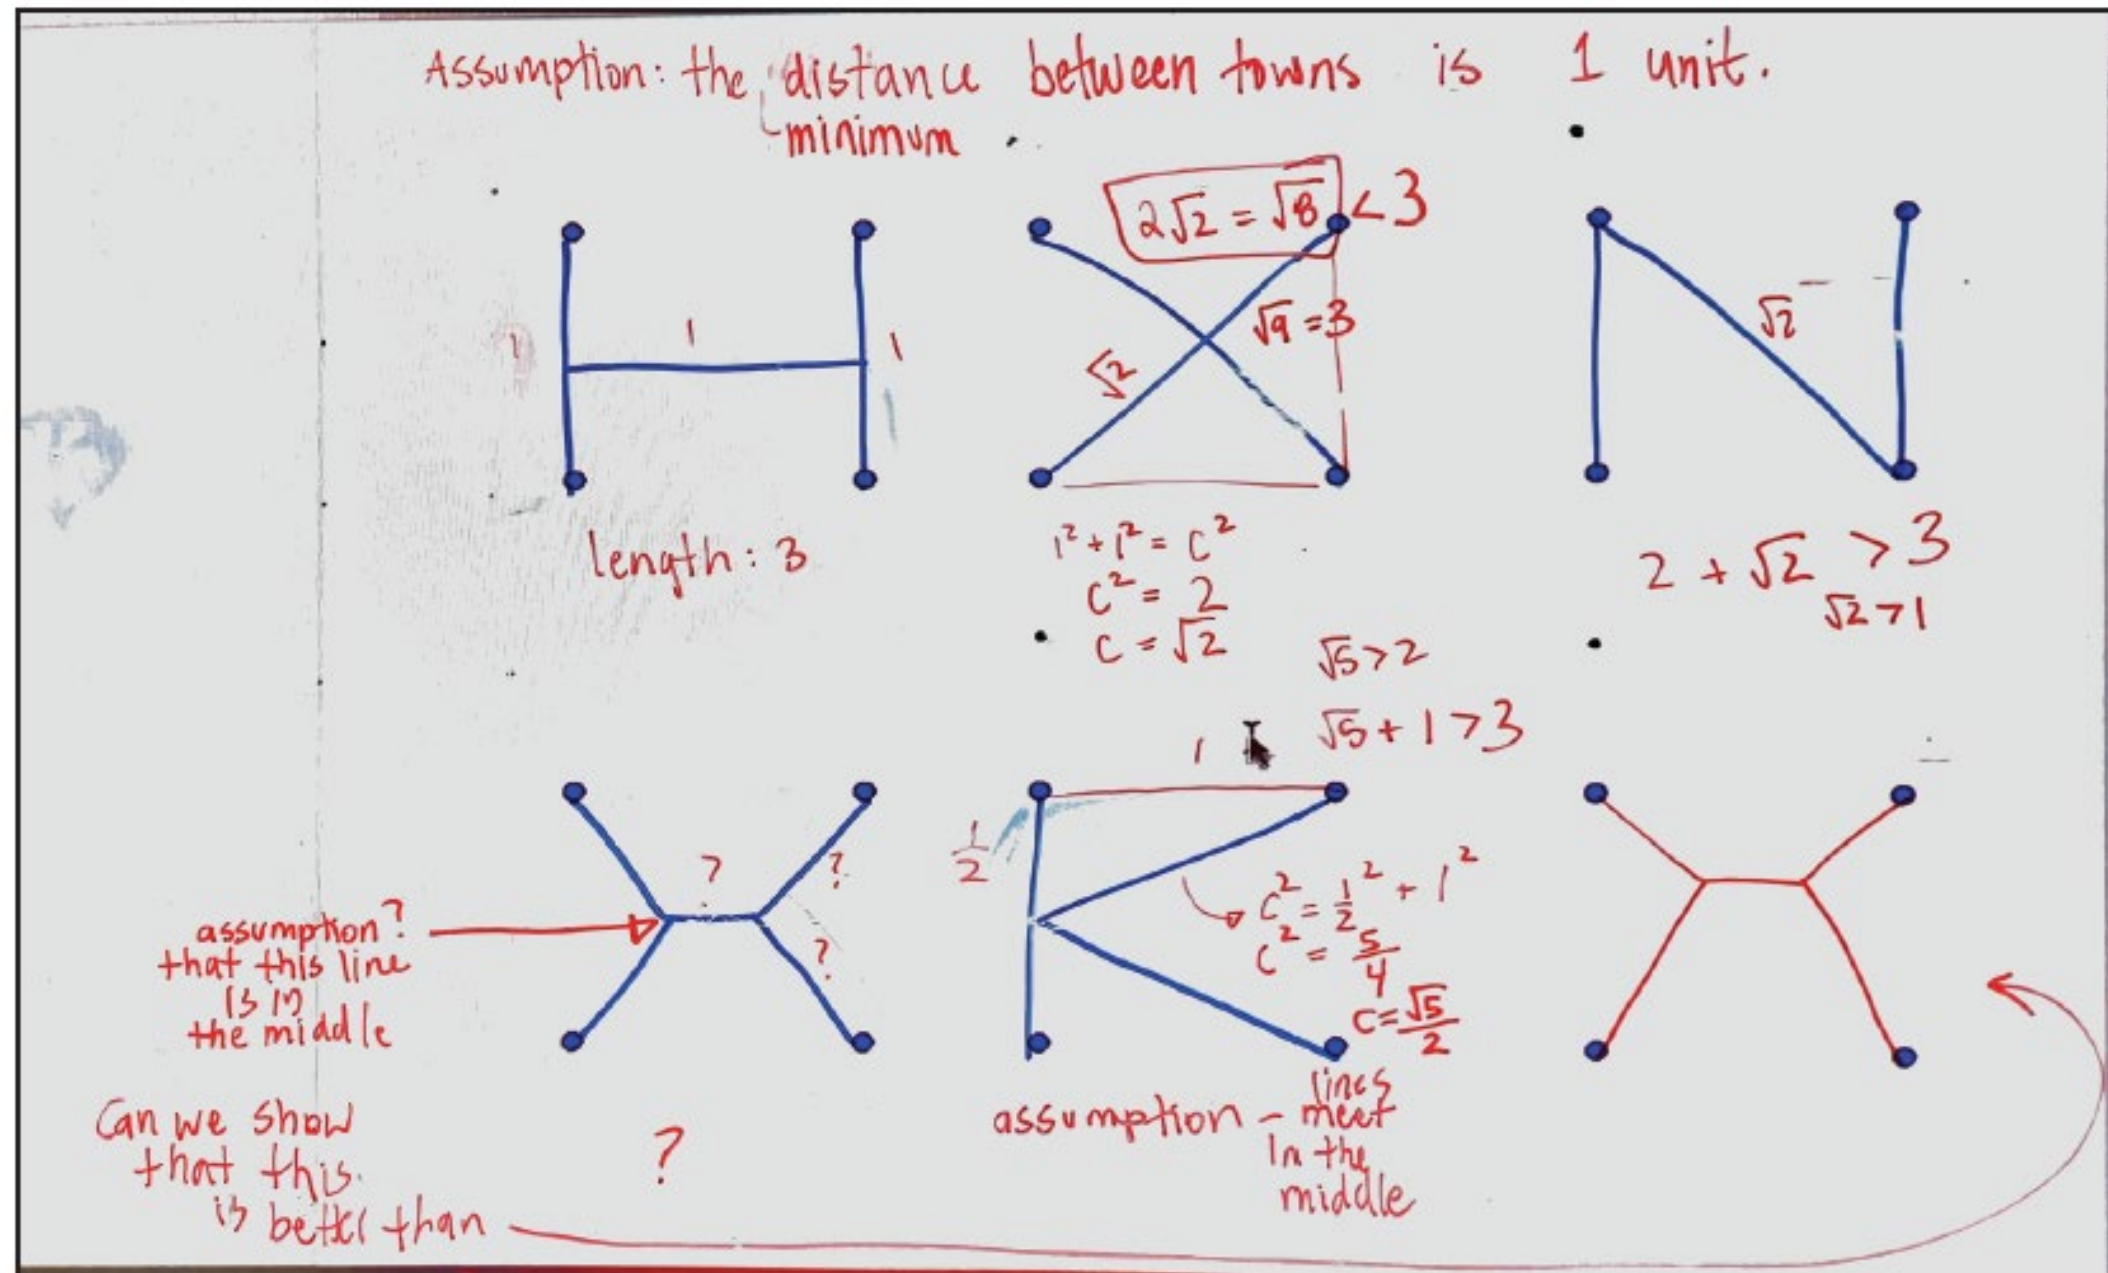 Assumption: the distance between towns is 1 unit.
minimum
2√2 = √8 < 3
1
1
1
√9 = 3
√2
√2
length: 3
1² + 1² = c²
c² = 2
c = √2
2 + √2 > 3
√2 > 1
√5 > 2
√5 + 1 > 3
1
1/2
?
?
?
c² = 1/2² + 1²
c² = 5/4
c = √5/2
assumption?
that this line
is in
the middle
assumption - lines
meet
in the
middle
Can we show
that this
is better than
?